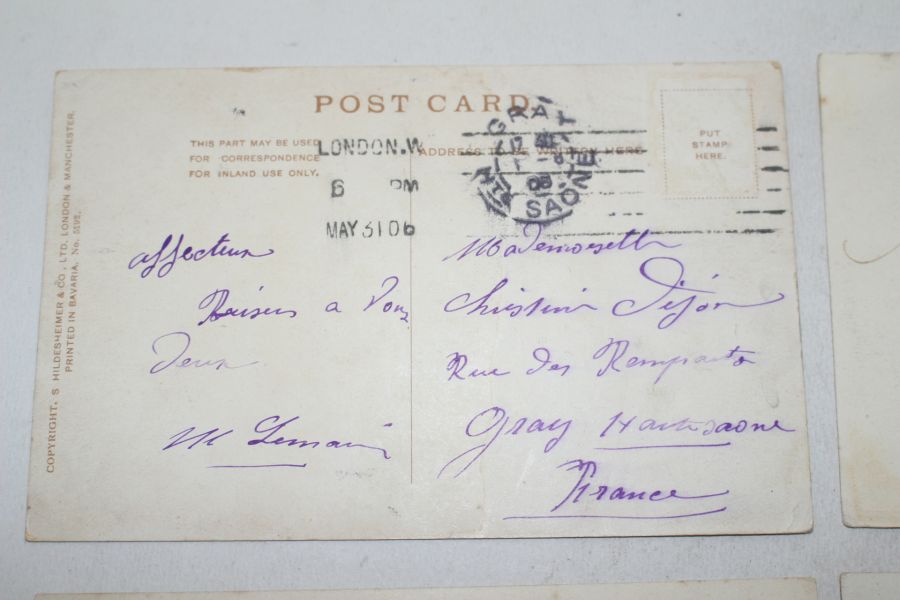 POST CARD.
THIS PART MAY BE USED
FOR CORRESPONDENCE
FOR INLAND USE ONLY.
ADDRESS TO BE WRITTEN HERE
PUT
STAMP
HERE.
LONDON.W
6 PM
MAY 31 06
GRAY
SAÔNE
COPYRIGHT. S HILDESHEIMER & CO., LTD. LONDON & MANCHESTER.
PRINTED IN BAVARIA. No.
affectueux
Baisers a Vous
Deux
M Lemaire
Mademoiselle
Christine Dijon
Rue des Remparts
Gray Haute Saone
France